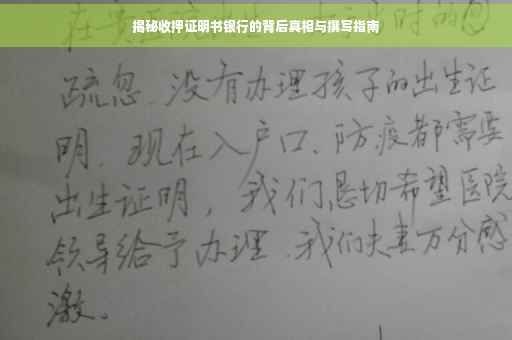 揭秘收押证明书银行的背后真相与撰写指南
疏忽、没有办理孩子的出生证
明、现在入户口、防疫都需要
出生证明，我们恳切希望医院
领导给予办理、我们夫妻万分感
激。